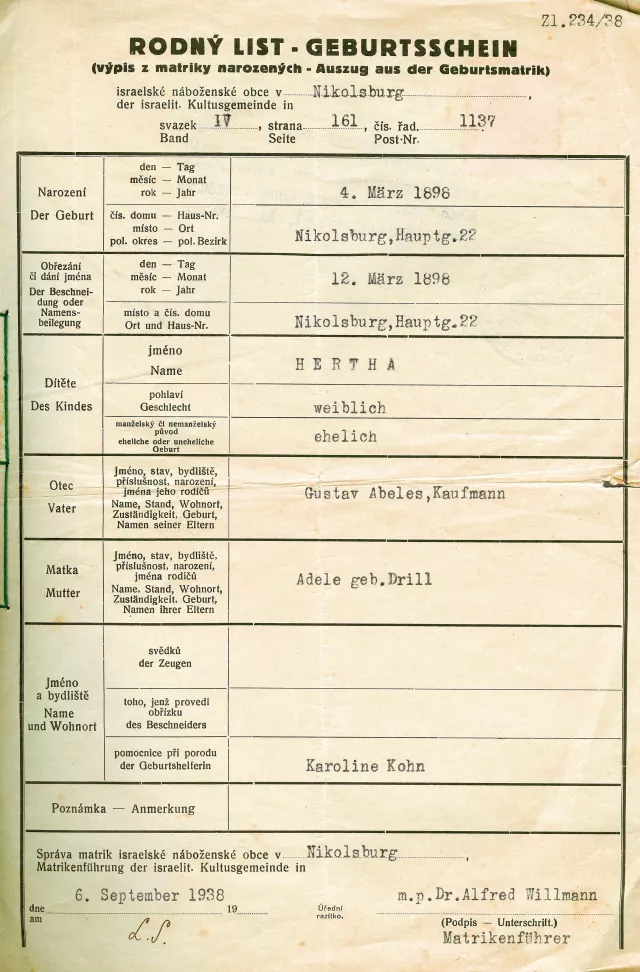 Zl.234/38
RODNÝ LIST - GEBURTSSCHEIN
(výpis z matriky narozených - Auszug aus der Geburtsmatrik)
israelské náboženské obce v Nikolsburg,
der israelit. Kultusgemeinde in
svazek IV, strana 161, čís. řad. 1137
Band Seite Post-Nr.
Narození
Der Geburt
den — Tag
měsíc — Monat
rok — Jahr
4. März 1898
čís. domu — Haus-Nr.
místo — Ort
pol. okres — pol. Bezirk
Nikolsburg,Hauptg.22
Obřezání
či dání jména
Der Beschnei-
dung oder
Namens-
beilegung
den — Tag
měsíc — Monat
rok — Jahr
12. März 1898
místo a čís. domu
Ort und Haus-Nr.
Nikolsburg,Hauptg.22
Dítěte
Des Kindes
jméno
Name
H E R T H A
pohlaví
Geschlecht
weiblich
manželský či nemanželský
původ
eheliche oder uneheliche
Geburt
ehelich
Otec
Vater
Jméno, stav, bydliště,
příslušnost, narození,
jména jeho rodičů
Name, Stand, Wohnort,
Zuständigkeit, Geburt,
Namen seiner Eltern
Gustav Abeles,Kaufmann
Matka
Mutter
Jméno, stav, bydliště,
příslušnost, narození,
jména rodičů
Name, Stand, Wohnort,
Zuständigkeit, Geburt,
Namen ihrer Eltern
Adele geb.Drill
Jméno
a bydliště
Name
und Wohnort
svědků
der Zeugen
toho, jenž provedl
obřízku
des Beschneiders
pomocnice při porodu
der Geburtshelferin
Karoline Kohn
Poznámka — Anmerkung
Správa matrik israelské náboženské obce v Nikolsburg,
Matrikenführung der israelit. Kultusgemeinde in
6. September 1938
dne 19
am
L.S.
Úřední
razítko.
m.p.Dr.Alfred Willmann
(Podpis — Unterschrift.)
Matrikenführer